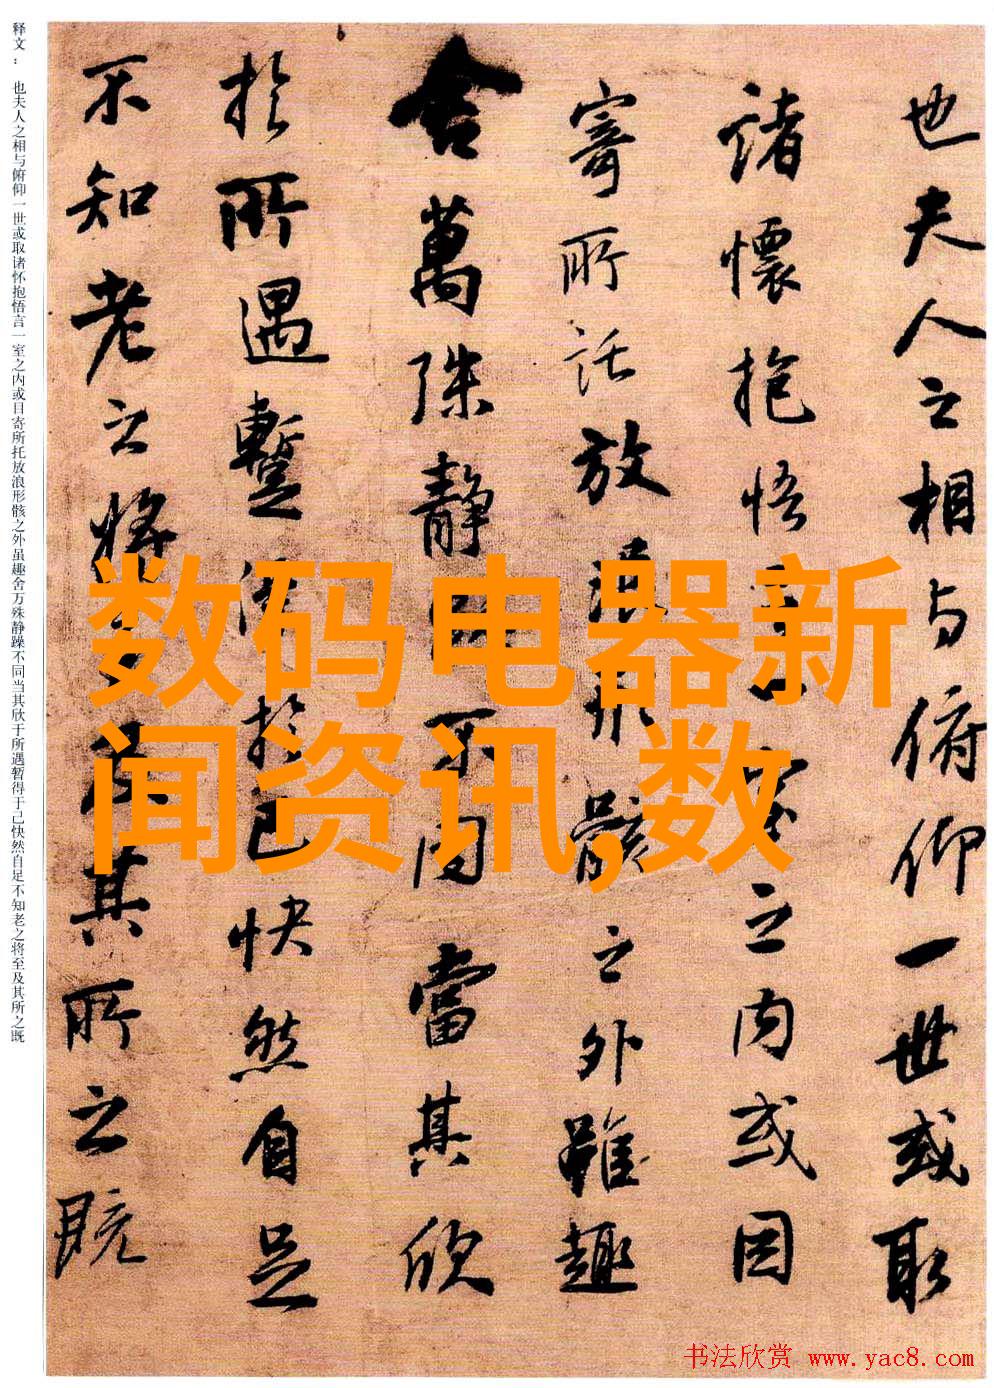 也夫人之相与俯仰一世或取
諸懷抱悟言一室之内或因
寄所託放浪形骸之外雖趣
舍萬殊静躁不同當其欣
於所遇蹔得於己快然自足
不知老之将至及其所之既
释文： 也夫人之相与俯仰一世或取诸怀抱悟言一室之内或目寄所托放浪形骸之外虽趣舍万殊静躁不同当其欣于所遇暂得于己快然自足不知老之将至及其所之既
数码电器新
闻资讯,数
书法欣赏 www.yac8.com